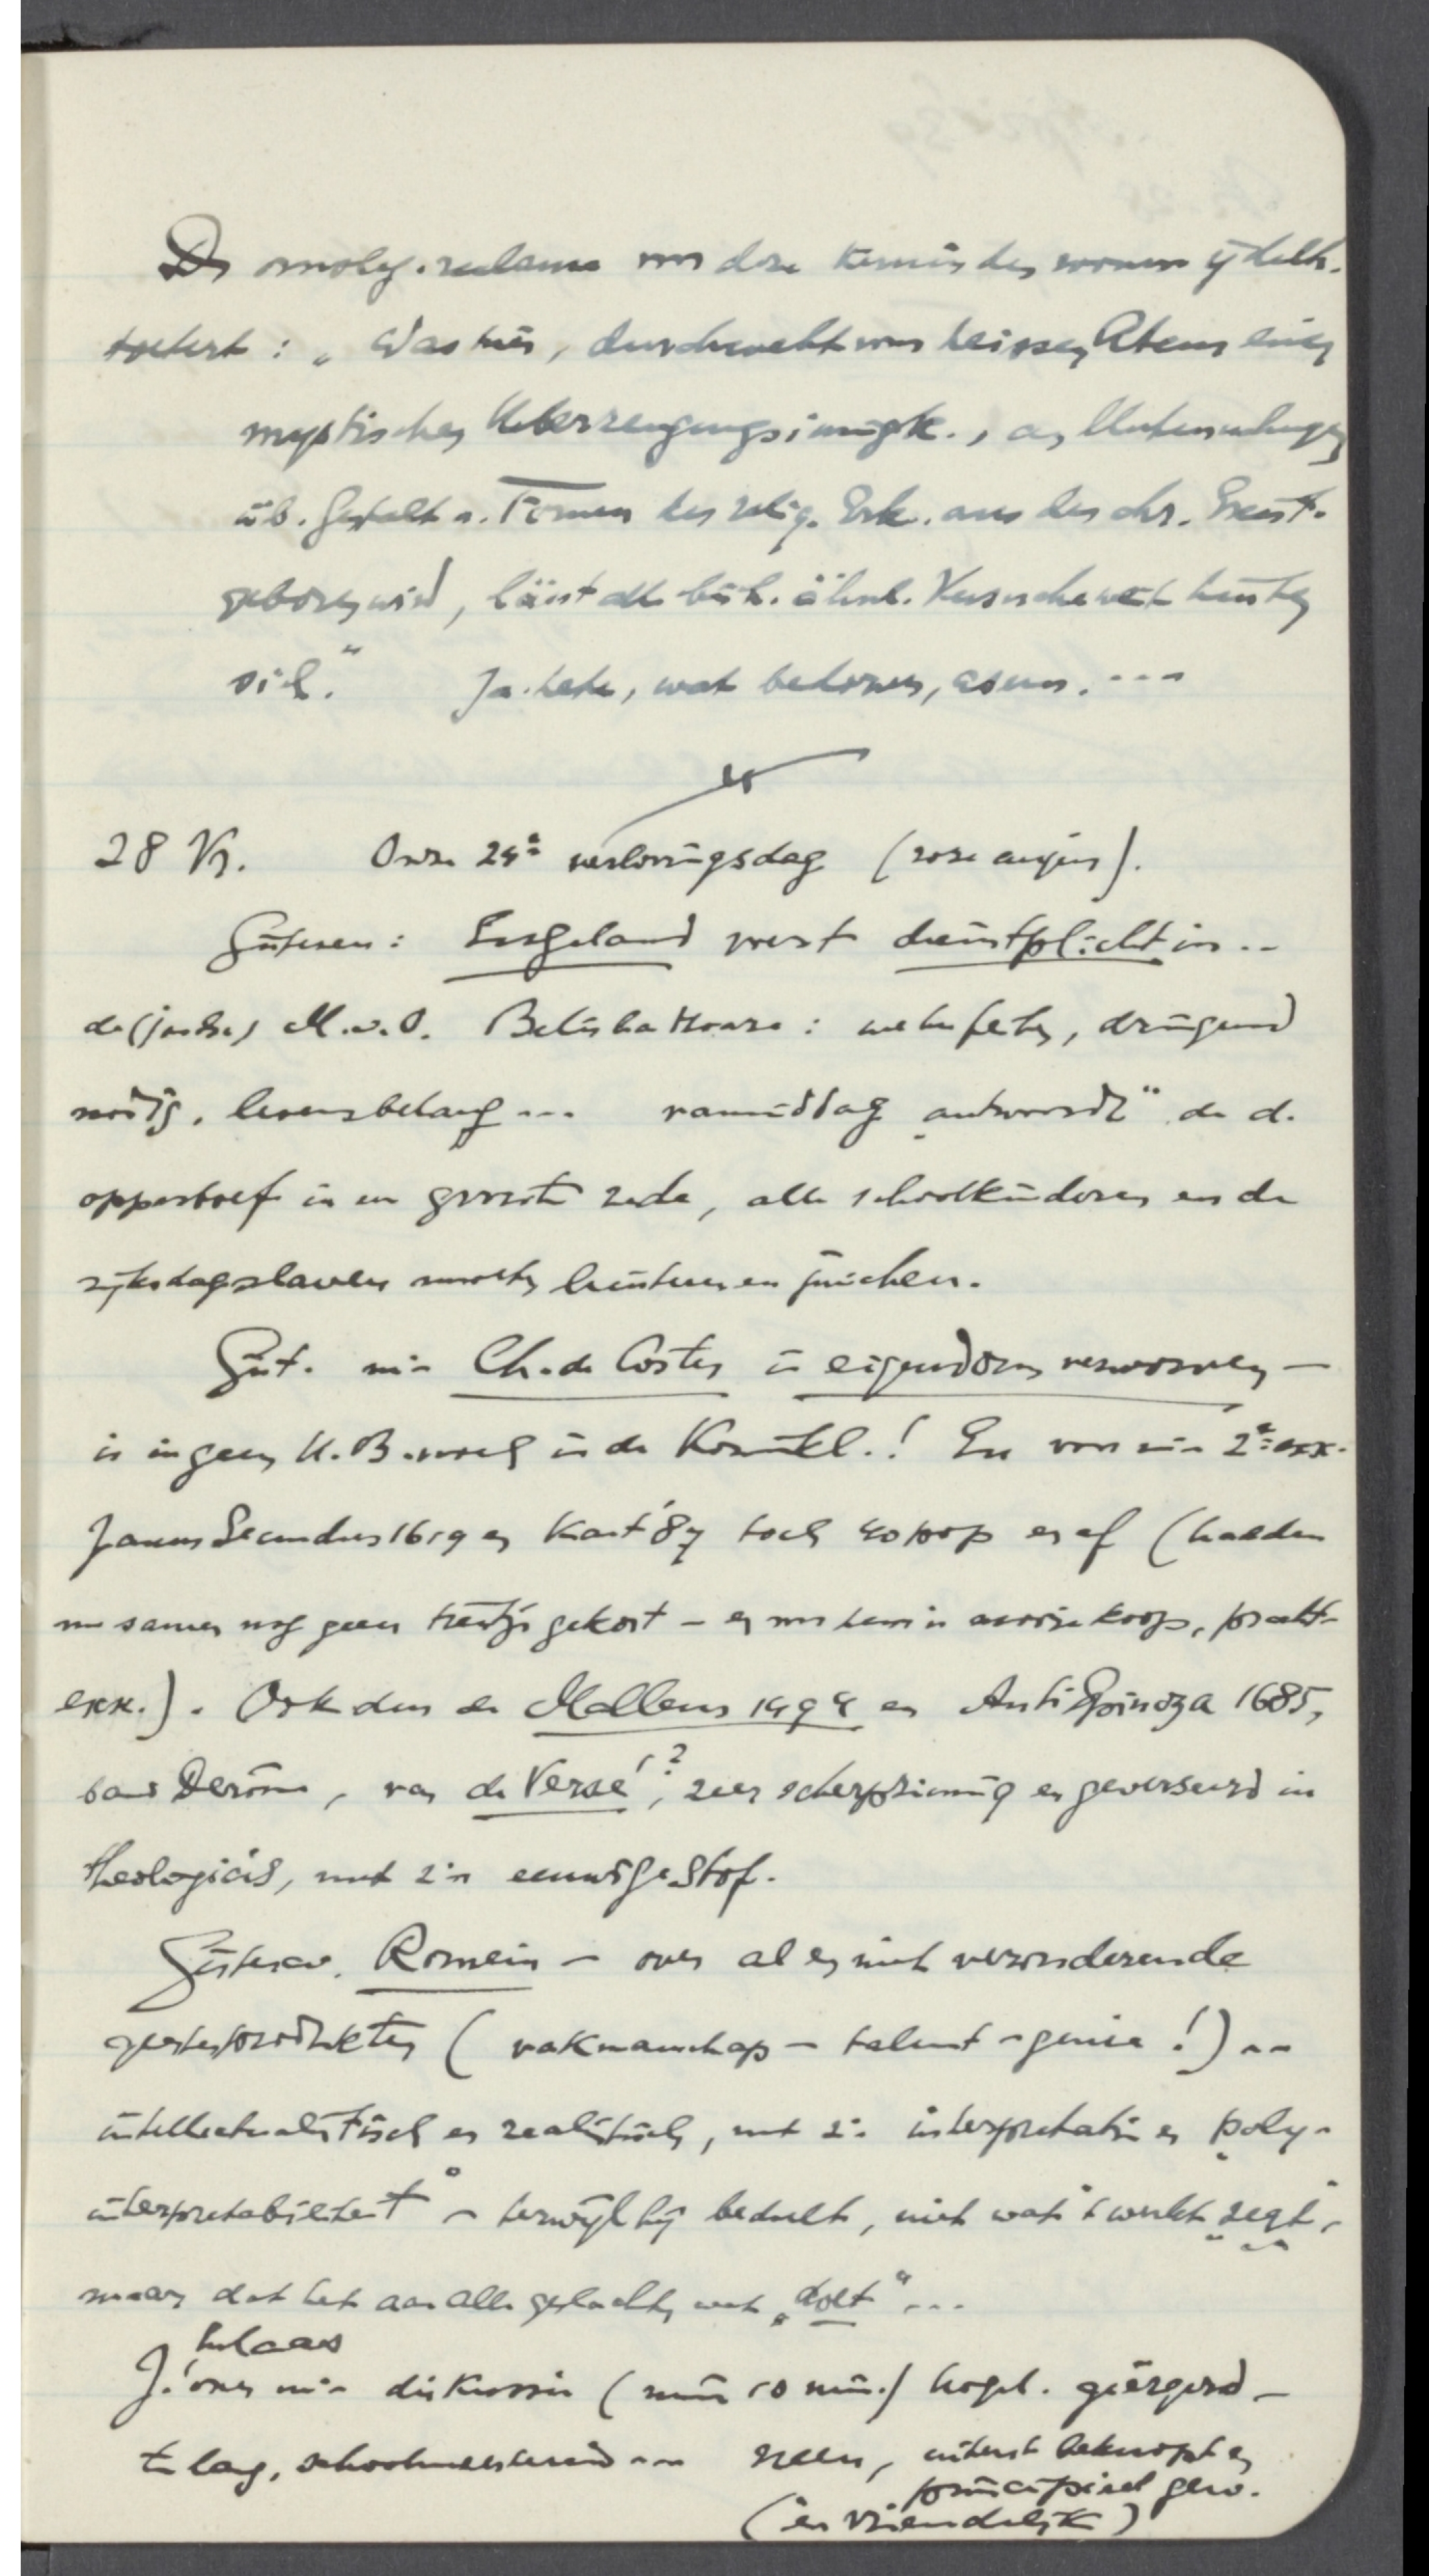 De omslag-reclame van deze kennis des
toetert: „Was hier, durchweht vom heissen Atem einer
mystischen Überzeugungsinnigk., an Untersuchungen
üb. Gestalt u. Formen der relig. Erk. aus der chr. Exist.
geboren wird, lässt alle bish. ähnl. Versuche weit hinter
sich.“ Ja. hete, wat
28 Vr. Onze 24e verlovingsdag (roze anjers).
Gisteren: Engeland voert dienstplicht in --
de (joodse) M.v.O. Belisha Hoare: welnee, dringend
nodig, levensbelang --- vanmiddag „antwoordt“ de d.
opperboef in een grote rede, alle schoolkinderen en de
rijksdagslaven moeten luisteren en juichen.
Gist. m'n Ch. de Coster in eigendom verworven —
is in geen U.B. noch in de Koninkl.! En van m'n 2e ex.
Janus Secundus 1619 en Kant '87 toch 40 pop er af (hadden
me samen nog geen tientje gekost — en nu hem in mooie koop, pracht-
exx.). Ook dus de Malleus 1494 en AntiSpinoza 1685,
van de Versé!?, zeer scherpzinnig en geverseerd in
theologicis, met z'n eeuwige stof.
Gisterav. Romein — over al en niet verouderende
geestesprodukten (vakmanschap — talent — genie!) --
intellectualistisch en realistisch, met z'n interpretatie en „poly-
interpretabiliteit“ — terwijl hij bedoelt, niet wat 't werkt „zegt“,
maar dat het aan alle geslachten wat „doet“ ---
helaas
J. over m'n diskussie (mijn 10 min.) hogel. geërgerd —
te lang, schoolmeesterend --- neen, uiterst beknopt en
principieel gew.
(en vriendelijk)